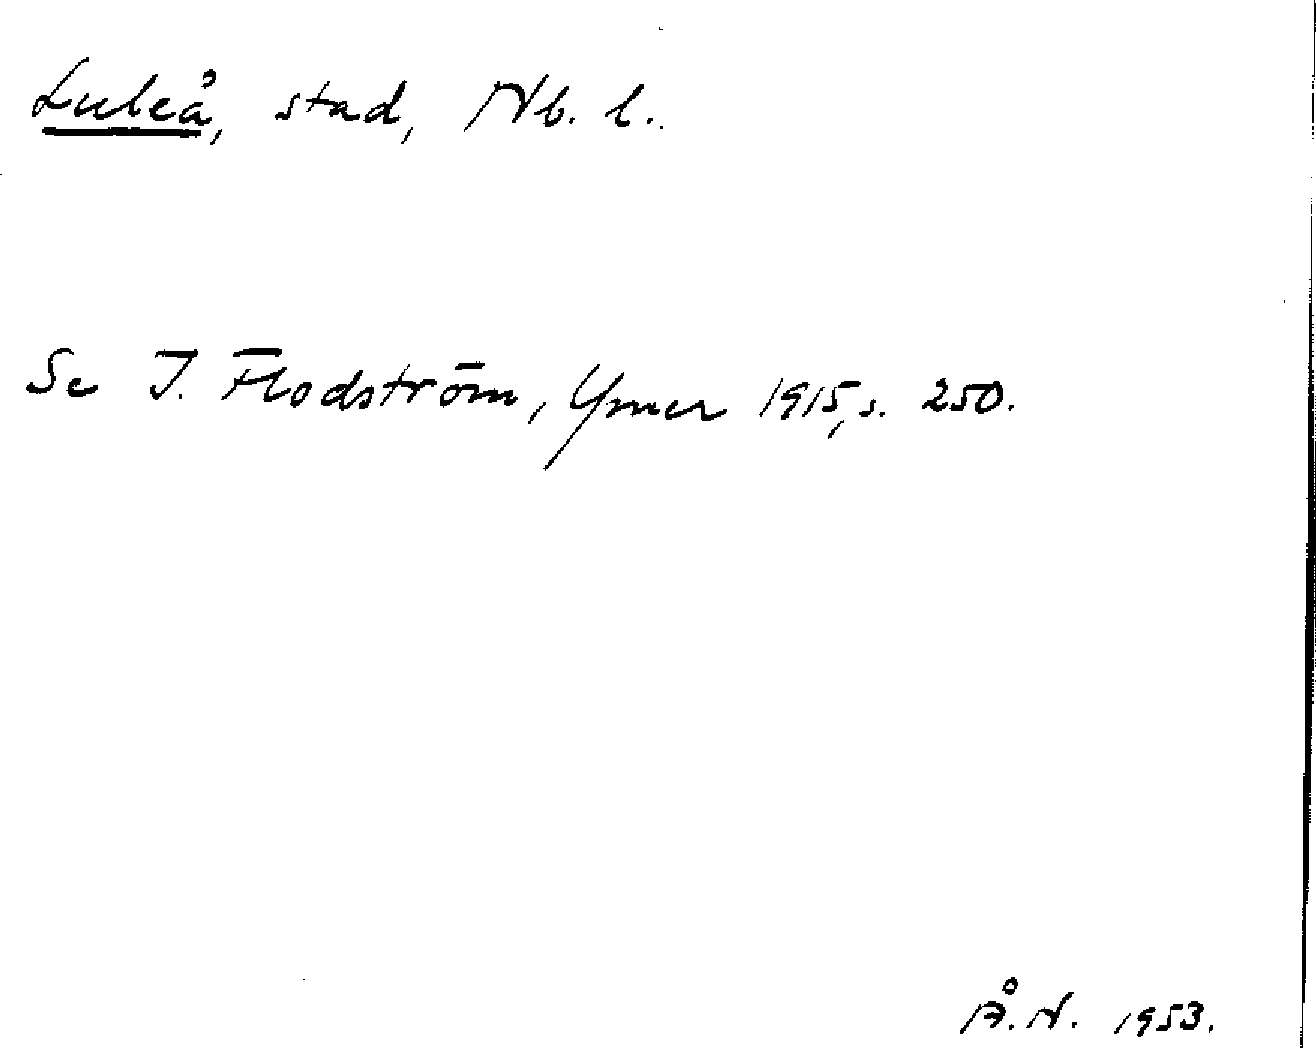 Luleå, stad, Nb. l.
Se I. Flodström, Ymer 1915, s. 250.
Å. N. 1953.